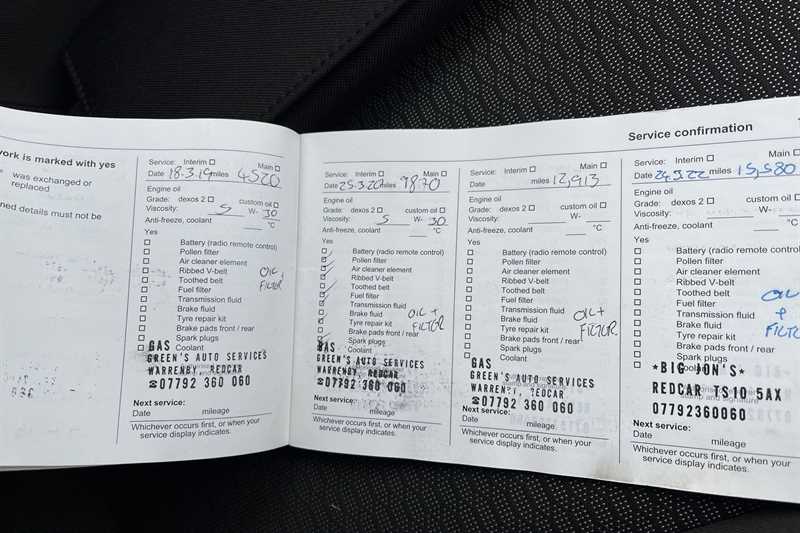 Service confirmation
ork is marked with yes
was exchanged or
replaced
ned details must not be
Service: Interim Main
Date 18.3.19 miles 4520
Engine oil
Grade: dexos 2 custom oil
Viscosity: 5 W- 30
Anti-freeze, coolant °C
Yes
Battery (radio remote control)
Pollen filter
Air cleaner element
Ribbed V-belt
Toothed belt
Fuel filter
Transmission fluid
Brake fluid
Tyre repair kit
Brake pads front / rear
Spark plugs
Coolant
OIL +
FILTER
GAS
GREEN'S AUTO SERVICES
WARRENBY, REDCAR
☎07792 360 060
Next service:
Date mileage
Whichever occurs first, or when your
service display indicates.
Service: Interim Main
Date 25.3.20 miles 9870
Engine oil
Grade: dexos 2 custom oil
Viscosity: 5 W- 30
Anti-freeze, coolant °C
Yes
Battery (radio remote control)
Pollen filter
Air cleaner element
Ribbed V-belt
Toothed belt
Fuel filter
Transmission fluid
Brake fluid
Tyre repair kit
Brake pads front / rear
Spark plugs
Coolant
OIL +
FILTER
GAS
GREEN'S AUTO SERVICES
WARRENBY, REDCAR
☎07792 360 060
Next service:
Date mileage
Whichever occurs first, or when your
service display indicates.
Service: Interim Main
Date miles 12,913
Engine oil
Grade: dexos 2 custom oil
Viscosity: W-
Anti-freeze, coolant °C
Yes
Battery (radio remote control)
Pollen filter
Air cleaner element
Ribbed V-belt
Toothed belt
Fuel filter
Transmission fluid
Brake fluid
Tyre repair kit
Brake pads front / rear
Spark plugs
Coolant
OIL +
FILTER
GAS
GREEN'S AUTO SERVICES
WARREN Y, REDCAR
☎07792 360 060
Next service:
Date mileage
Whichever occurs first, or when your
service display indicates.
Service: Interim Main
Date 24.3.22 miles 15,580
Engine oil
Grade: dexos 2 custom oil
Viscosity: W-
Anti-freeze, coolant °C
Yes
Battery (radio remote control)
Pollen filter
Air cleaner element
Ribbed V-belt
Toothed belt
Fuel filter
Transmission fluid
Brake fluid
Tyre repair kit
Brake pads front / rear
Spark plugs
OIL
+
FILTE
*BIG JON'S*
REDCAR TS10 5AX
07792360060
Next service:
Date mileage
Whichever occurs first, or when your
service display indicates.